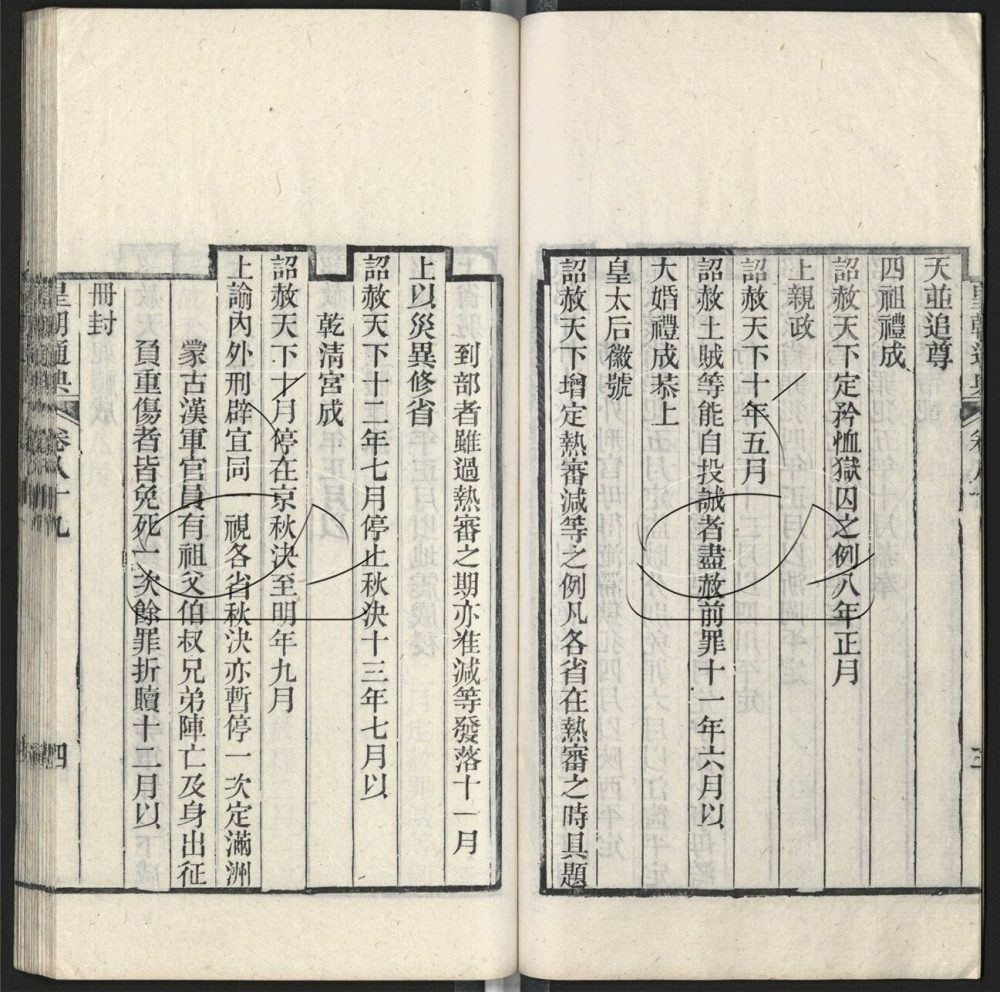 天並追尊
四祖禮成
詔赦天下定矜恤獄囚之例八年正月
上親政
詔赦天下十年五月
詔赦土賊等能自投誠者盡赦前罪十一年六月以
大婚禮成恭上
皇太后徽號
詔赦天下增定熱審減等之例凡各省在熱審之時具題
到部者雖過熱審之期亦准減等發落十一月
上以災異修省
詔赦天下十二年七月停止秋決十三年七月以
乾淸宮成
詔赦天下十月停在京秋決至明年九月
上諭內外刑辟宜同一視各省秋決亦暫停一次定滿洲
蒙古漢軍官員有祖父伯叔兄弟陣亡及身出征
負重傷者皆免死一次餘罪折贖十二月以
冊封
皇朝通典 卷八十九 四